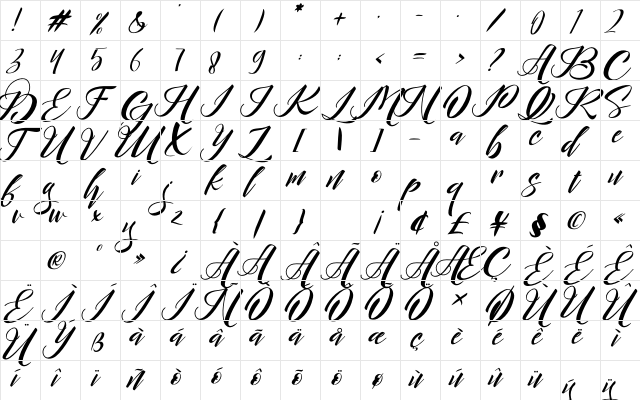 ! # % & ' ( ) * + , - . / 0 1 2
3 4 5 6 7 8 9 : ; < = > ? A B C
D E F G H I J K L M N O P Q R S
T U V W X Y Z [ \ ] _ a b c d e
f g h i j k l m n o p q r s t u
v w x y z { | } ¡ ¢ £ ¥ § © «
® ° » ¿ À Á Â Ã Ä Å Æ Ç È É Ê
Ë Ì Í Î Ï Ñ Ò Ó Ô Õ Ö × Ø Ù Ú Û
Ü Ý ß à á â ã ä å æ ç è é ê ë ì
í î ï ñ ò ó ô õ ö ø ù ú û ü ý ÿ